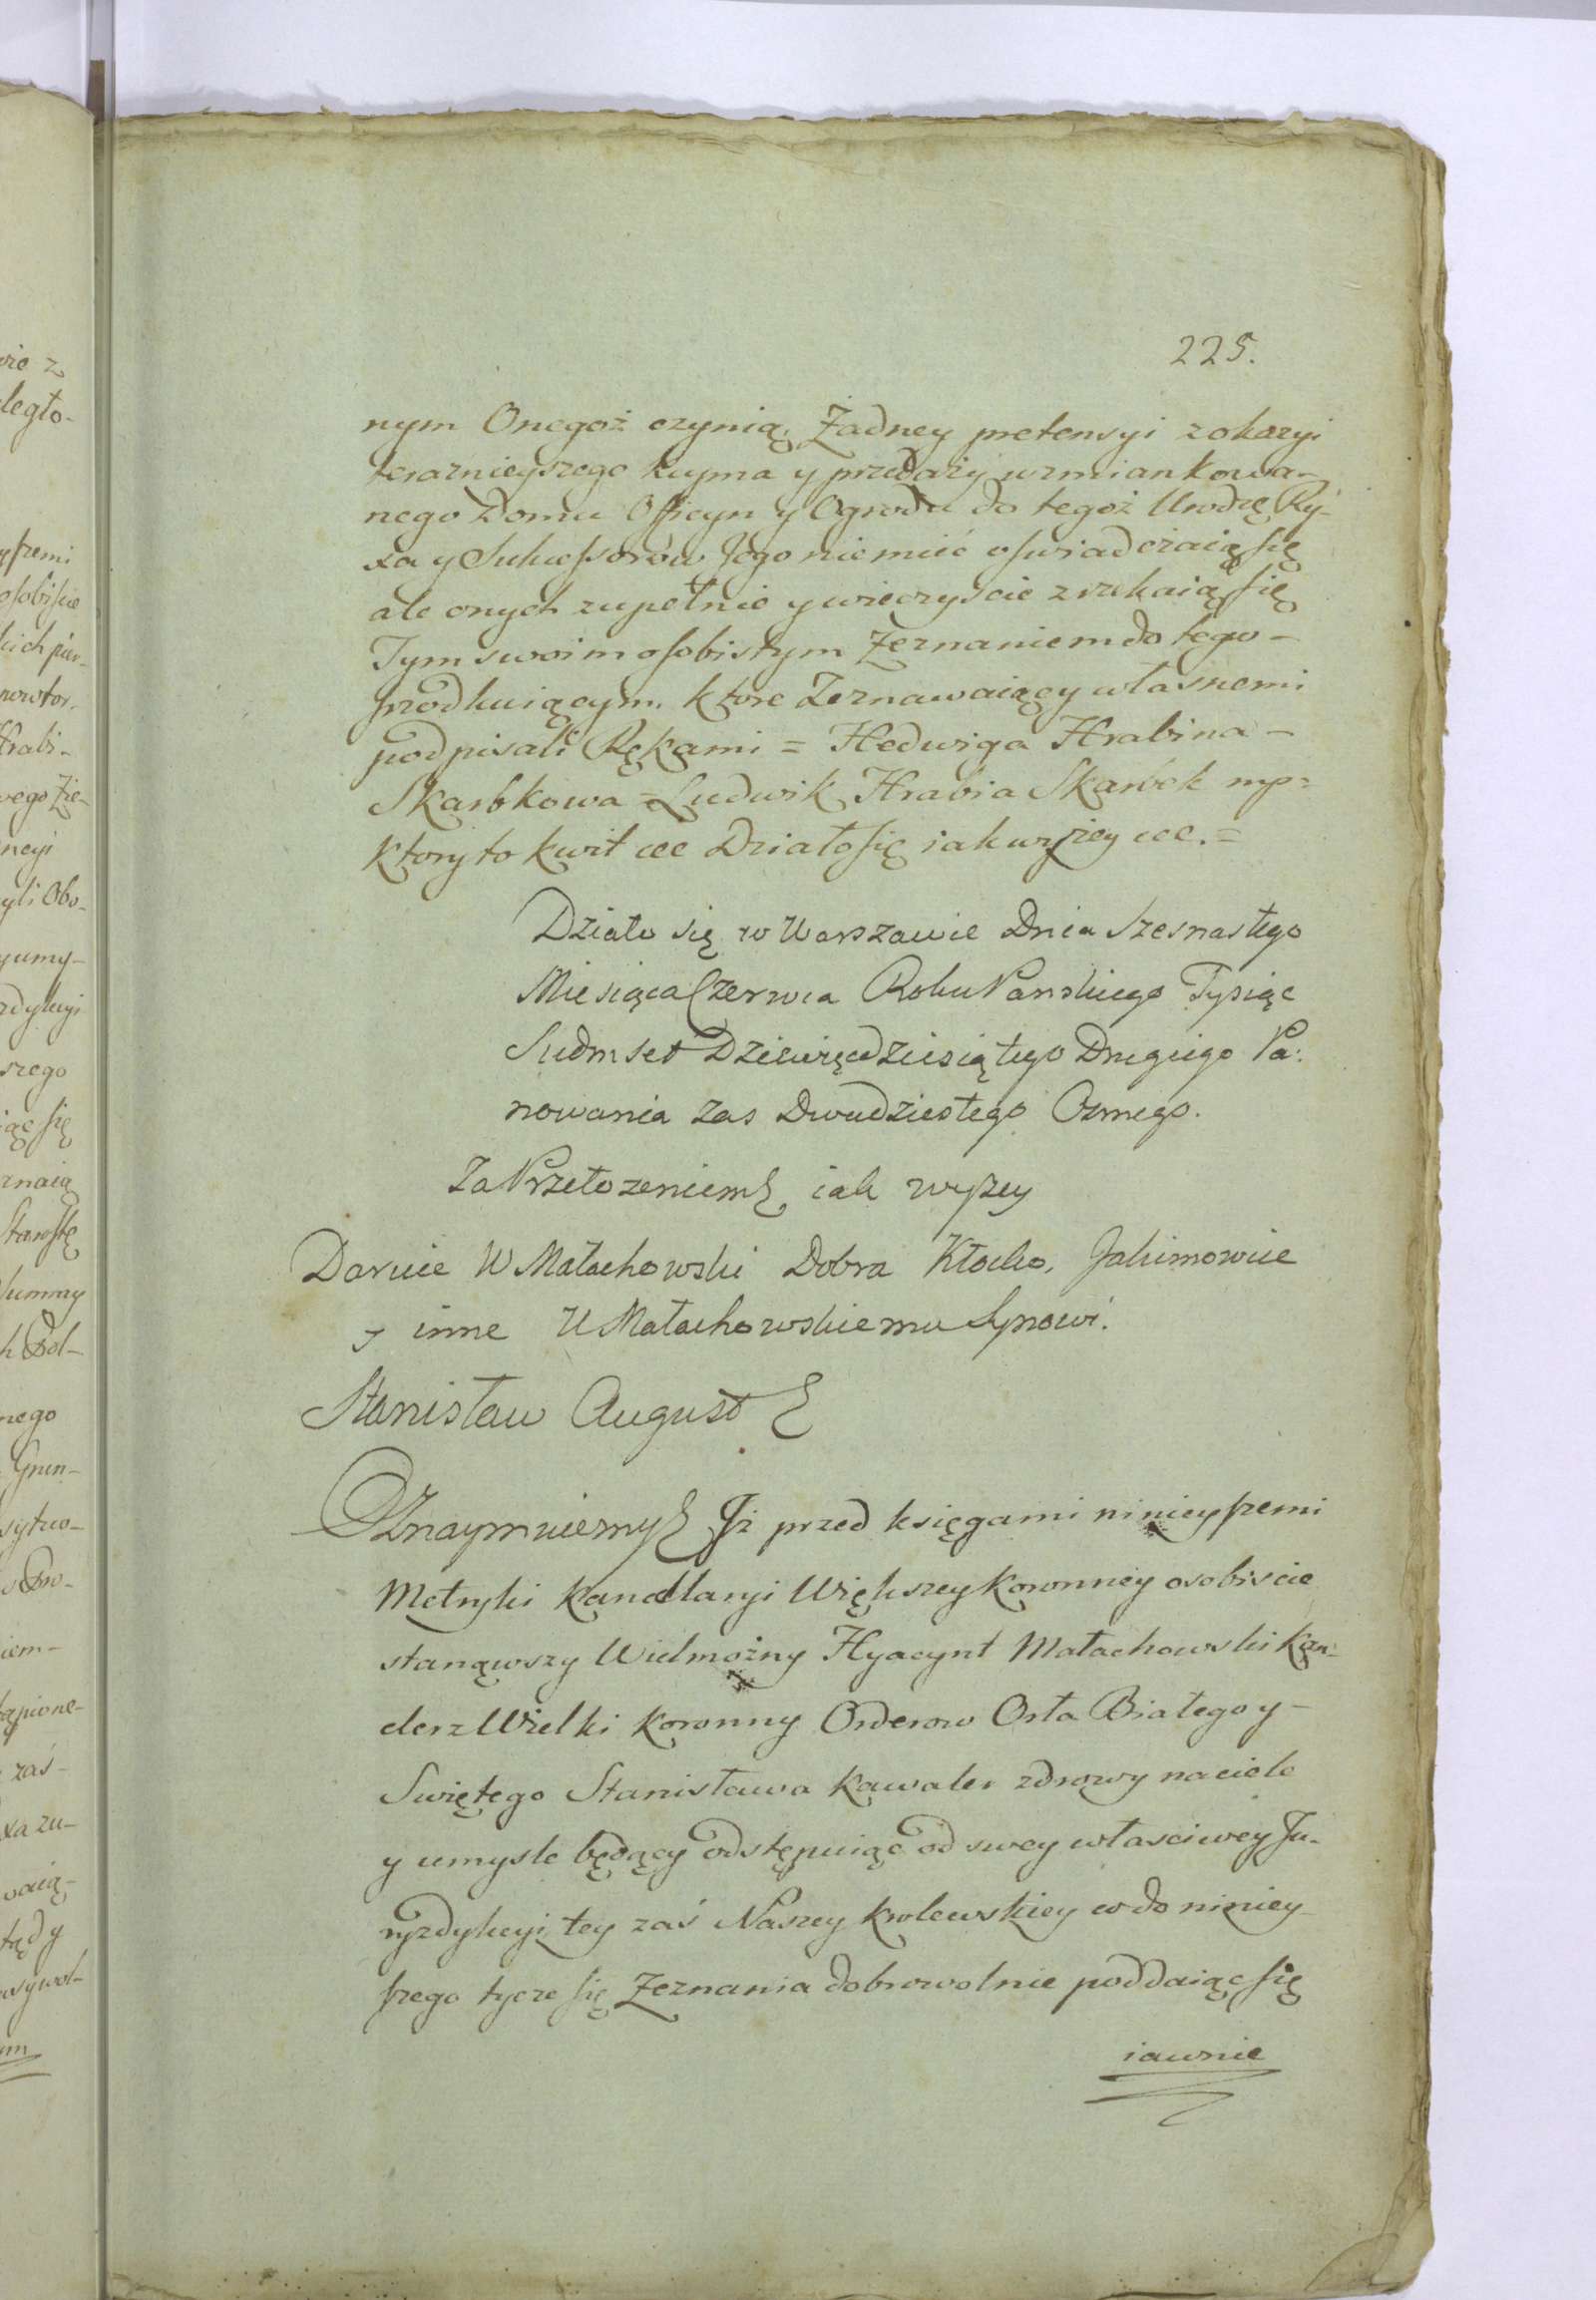 225.
nym Onegoż czynią. Żadney pretensyi z okazyi
teraznieyszego kupna y przedaży wzmiankowa-
nego Domu Officyn y Ogrodu do tegoż Urodzę Ry-
xa y Sukcessorów Jego niemieć oswiadczaią się
ale onych zupełnie y wieczyscie zrzekaią się
Tym swoim osobistym Zeznaniem do tego-
ktore Zeznawaiący własnemi
podpisali Rękami = Hedwiga Hrabina-
Skarbkowa = Ludwik Hrabia Skarbek mp=
ktory to kwit etc Działo się iak wyżey etc.=
Działo się w Warszawie Dnia Szesnastego
Miesiąca Czerwca Roku Panskiego Tysiąc
Siedmset Dziewięcdziesiątego Drugiego Pa:
nowania zas Dwudziestego Osmego.
Za Przełozeniem iak wyszey
Daruie W Małachowski Dobra Jakimowice
y inne W Małachowskiemu Synowi.
Stanisław August
Oznaymuiemy Iż przed księgami ninieyszemi
Metryki kancellaryi Większey koronney osobiscie
stanąwszy Wielmożny Hyacynt Małachowski Kan-
clerz Wielki koronny Orderow Orła Białego y-
Swiętego Stanisława kawaler zdrowy na ciele
y umysle będący odstępuiąc od swey własciwey Ju-
ryzdykcyi, tey zaś Naszey krolewskiey co do niniey-
szego tycze się Zeznania dobrowolnie poddaiąc się
iawnie